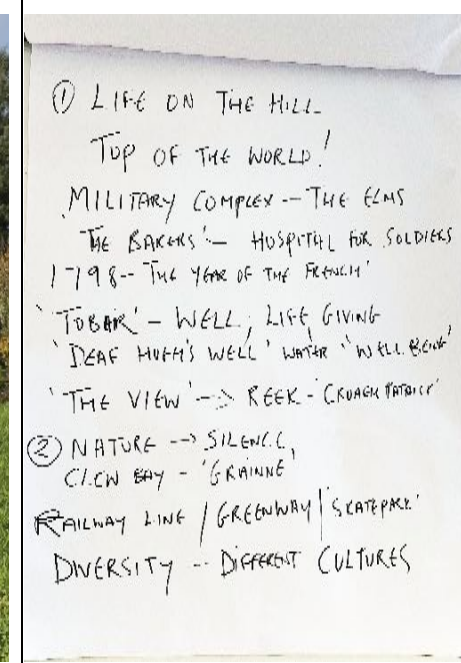 ① LIFE ON THE HILL
TOP OF THE WORLD!
MILITARY COMPLEX -- THE ELMS
'THE BAKERS' -- HOSPITAL FOR SOLDIERS
1798 -- 'THE YEAR OF THE FRENCH'
'TOBAR' - WELL, LIFE GIVING
'DEAF HUGH'S WELL' WATER 'WELL BEING'
'THE VIEW' --> REEK - 'CROAGH PATRICK'
② NATURE --> SILENCE,
CLEW BAY - 'GRAINNE'
RAILWAY LINE / GREENWAY / SKATEPARK'
DIVERSITY -- DIFFERENT CULTURES